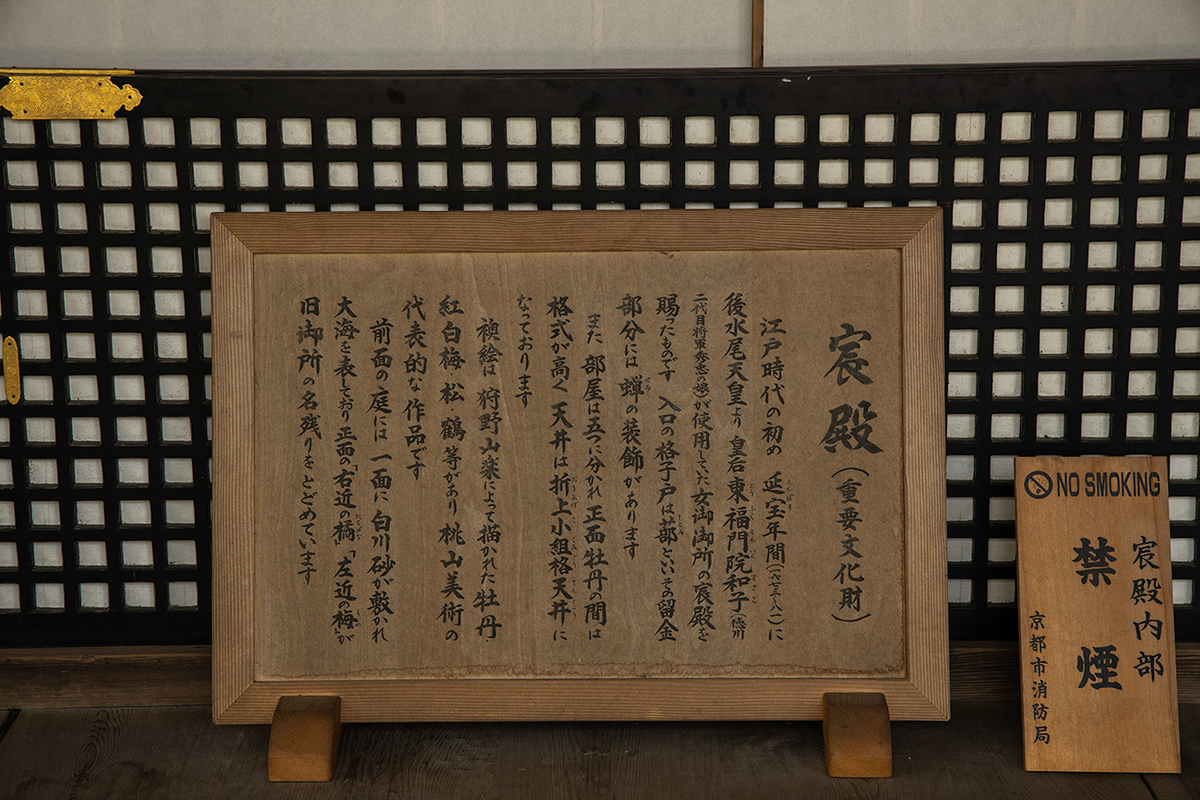 宸殿(重要文化財)
江戸時代の初め 延宝年間(一六七三〜八一)に
後水尾天皇より 皇后東福門院和子(徳川
二代目将軍秀忠の娘)が使用していた女御御所の宸殿を
賜ったものです 入口の格子戸は蔀といいその留金
部分には 蝉の装飾があります
また 部屋は五つに分かれ 正面牡丹の間は
格式が高く 天井は折上小組格天井に
なっております
襖絵は 狩野山楽によって描かれた牡丹・
紅白梅・松・鶴等があり 桃山美術の
代表的な作品です
前面の庭には 一面に 白川砂が敷かれ
大海を表しており 正面の「右近の橘」「左近の梅」が
旧御所の名残りをとどめています
NO SMOKING
宸殿内部
禁煙
京都市消防局